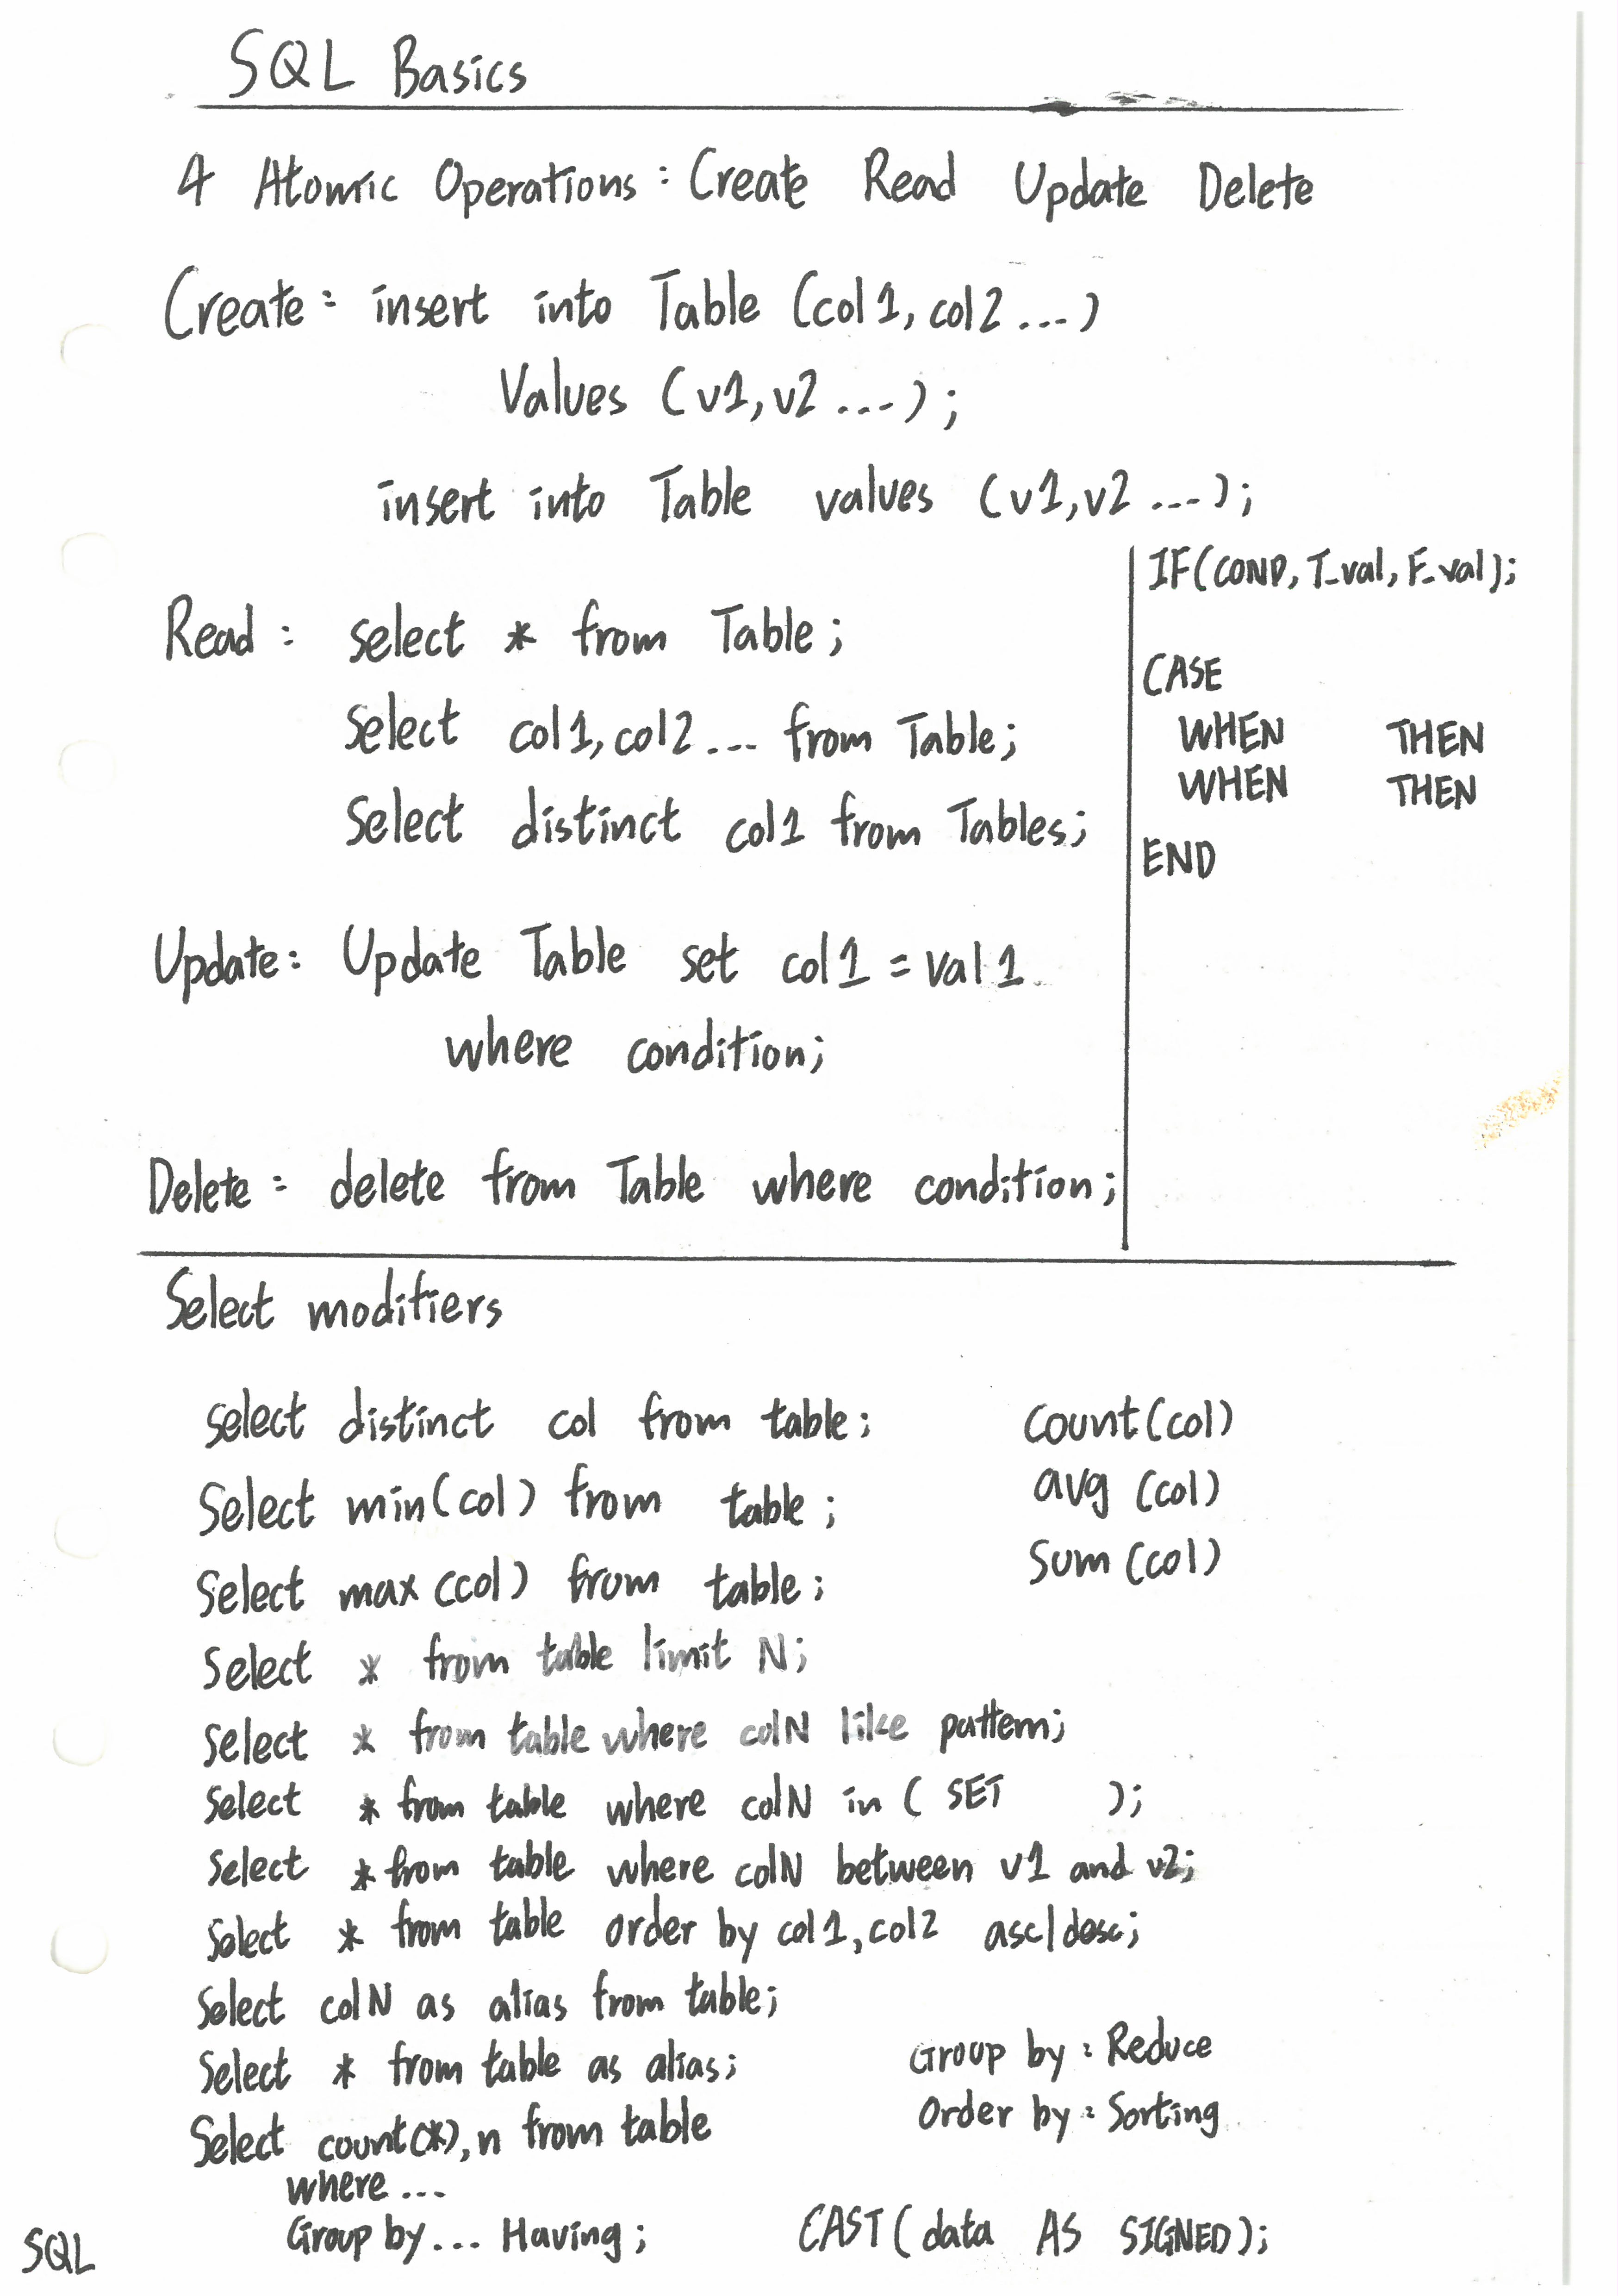 SQL Basics
4 Atomic Operations: Create Read Update Delete
Create: insert into Table (col1, col2 ...)
Values (v1, v2 ...);
insert into Table values (v1, v2 ...);
Read: select * from Table;
Select col1, col2 ... from Table;
Select distinct col1 from Tables;
IF(COND, T_val, F_val);
CASE
WHEN THEN
WHEN THEN
END
Update: Update Table set col1 = val1
where condition;
Delete: delete from Table where condition;
Select modifiers
select distinct col from table;
Select min(col) from table;
Select max(col) from table;
count(col)
avg (col)
Sum (col)
Select * from table limit N;
Select * from table where colN like pattern;
Select * from table where colN in ( SET );
Select * from table where colN between v1 and v2;
Select * from table order by col1, col2 asc|desc;
Select colN as alias from table;
Select * from table as alias;
Select count(*), n from table
where ...
Group by ... Having;
Group by: Reduce
Order by: Sorting
CAST( data AS SIGNED);
SQL